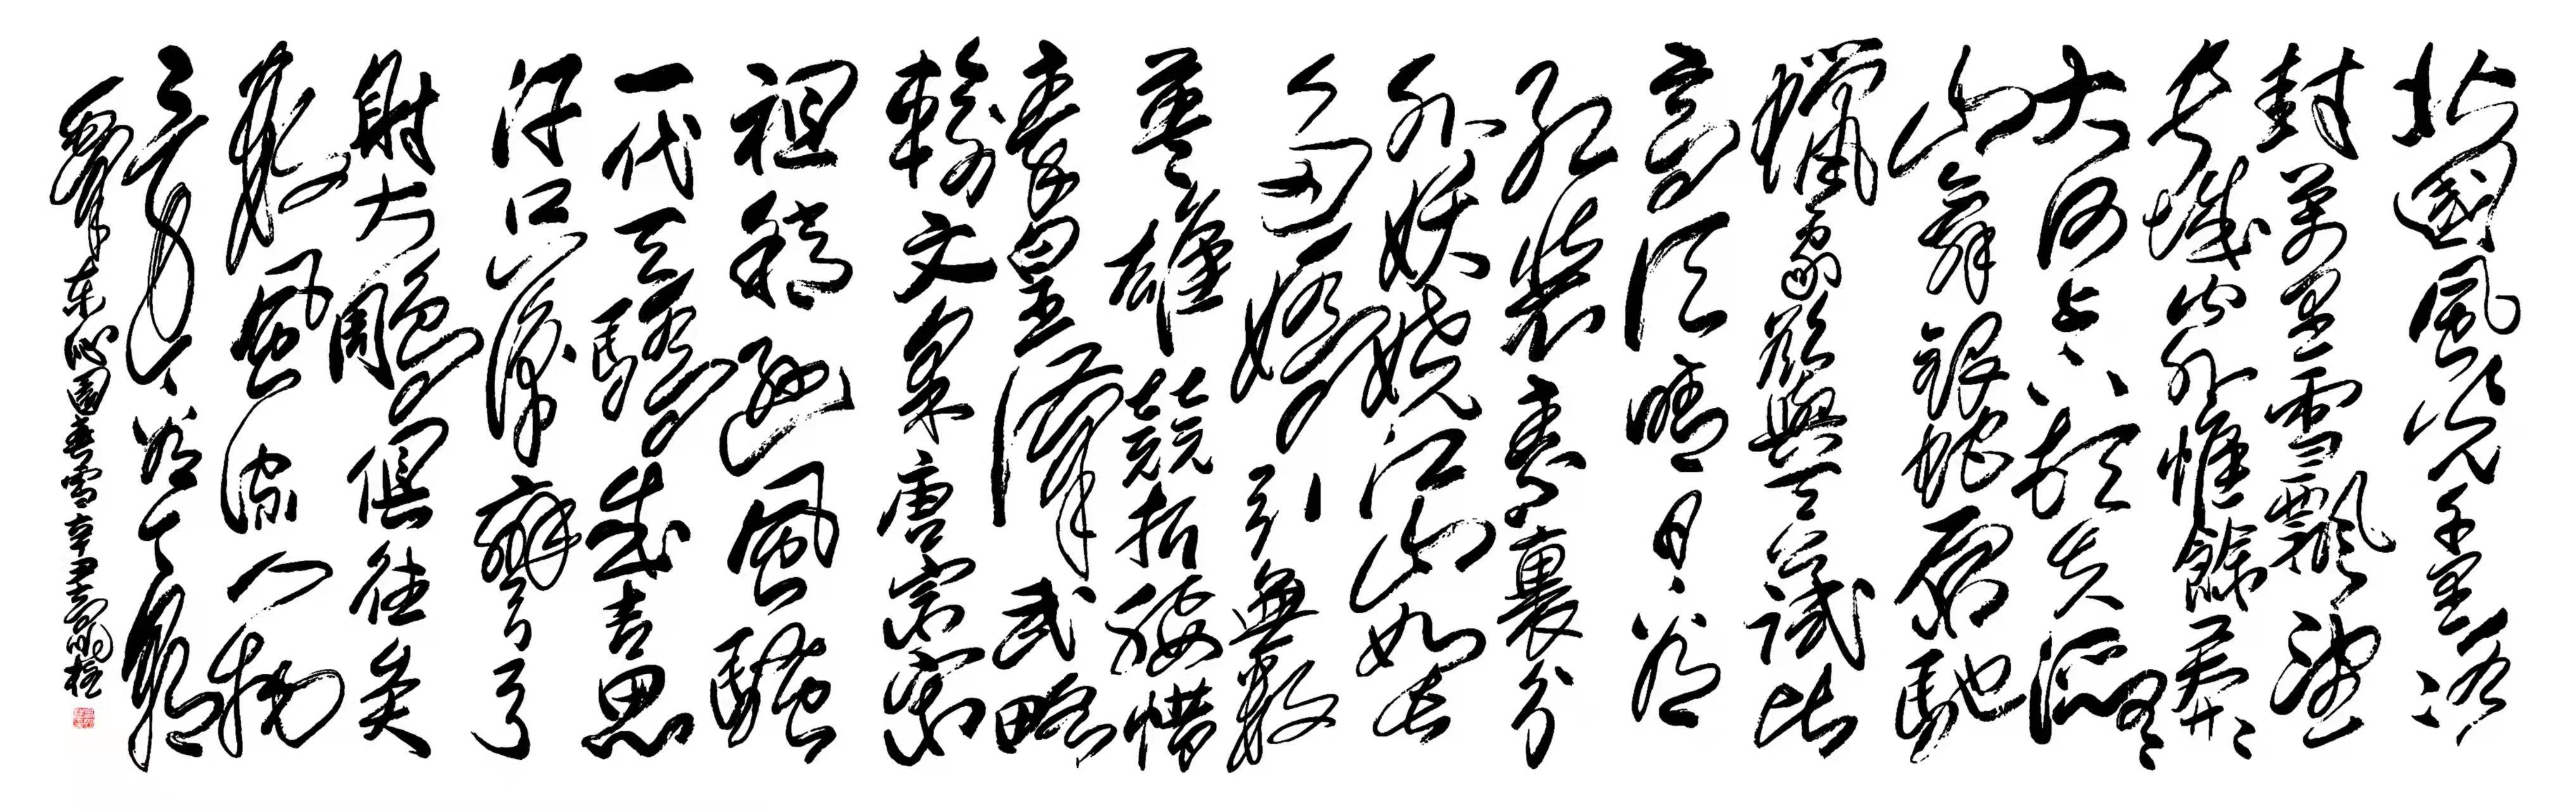 北國風光千里冰
封萬里雪飄望
長城內外惟餘莽々
大河上下頓失滔々
山舞銀蛇原馳
蠟象欲與天公試比
高須晴日看
紅裝素裹分
外妖嬈江山如此
多嬌引無數
英雄競折腰惜
秦皇漢武略
輸文采唐宗宋
祖稍遜風騷
一代天驕成吉思
汗只識彎弓
射大雕俱往矣
數風流人物
還看今朝
毛澤東沁園春雪辛丑